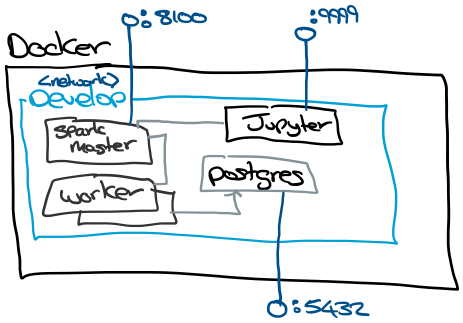 :8100
:9999
Docker
<network>
Develop
Spark
master
Jupyter
postgres
worker
:5432